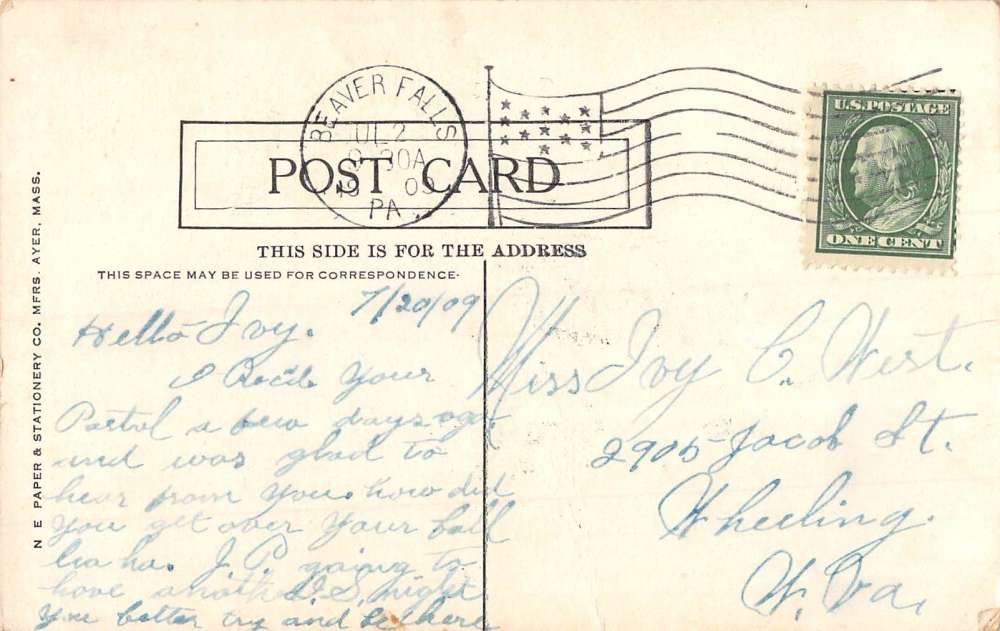 BEAVER FALLS
PA
U.S. POSTAGE
ONE CENT
POST CARD
THIS SIDE IS FOR THE ADDRESS
THIS SPACE MAY BE USED FOR CORRESPONDENCE.
N E PAPER & STATIONERY CO. MFRS. AYER, MASS.
7/20/09
Hello Ivy.
I Recd. your
Postal a few days ago
and was glad to
hear from you. how did
you get over your ball
ha ha. J. P. going to
have another S. night
you better try and be here
Miss Ivy C. West.
2905 Jacob St.
Wheeling.
W. Va,